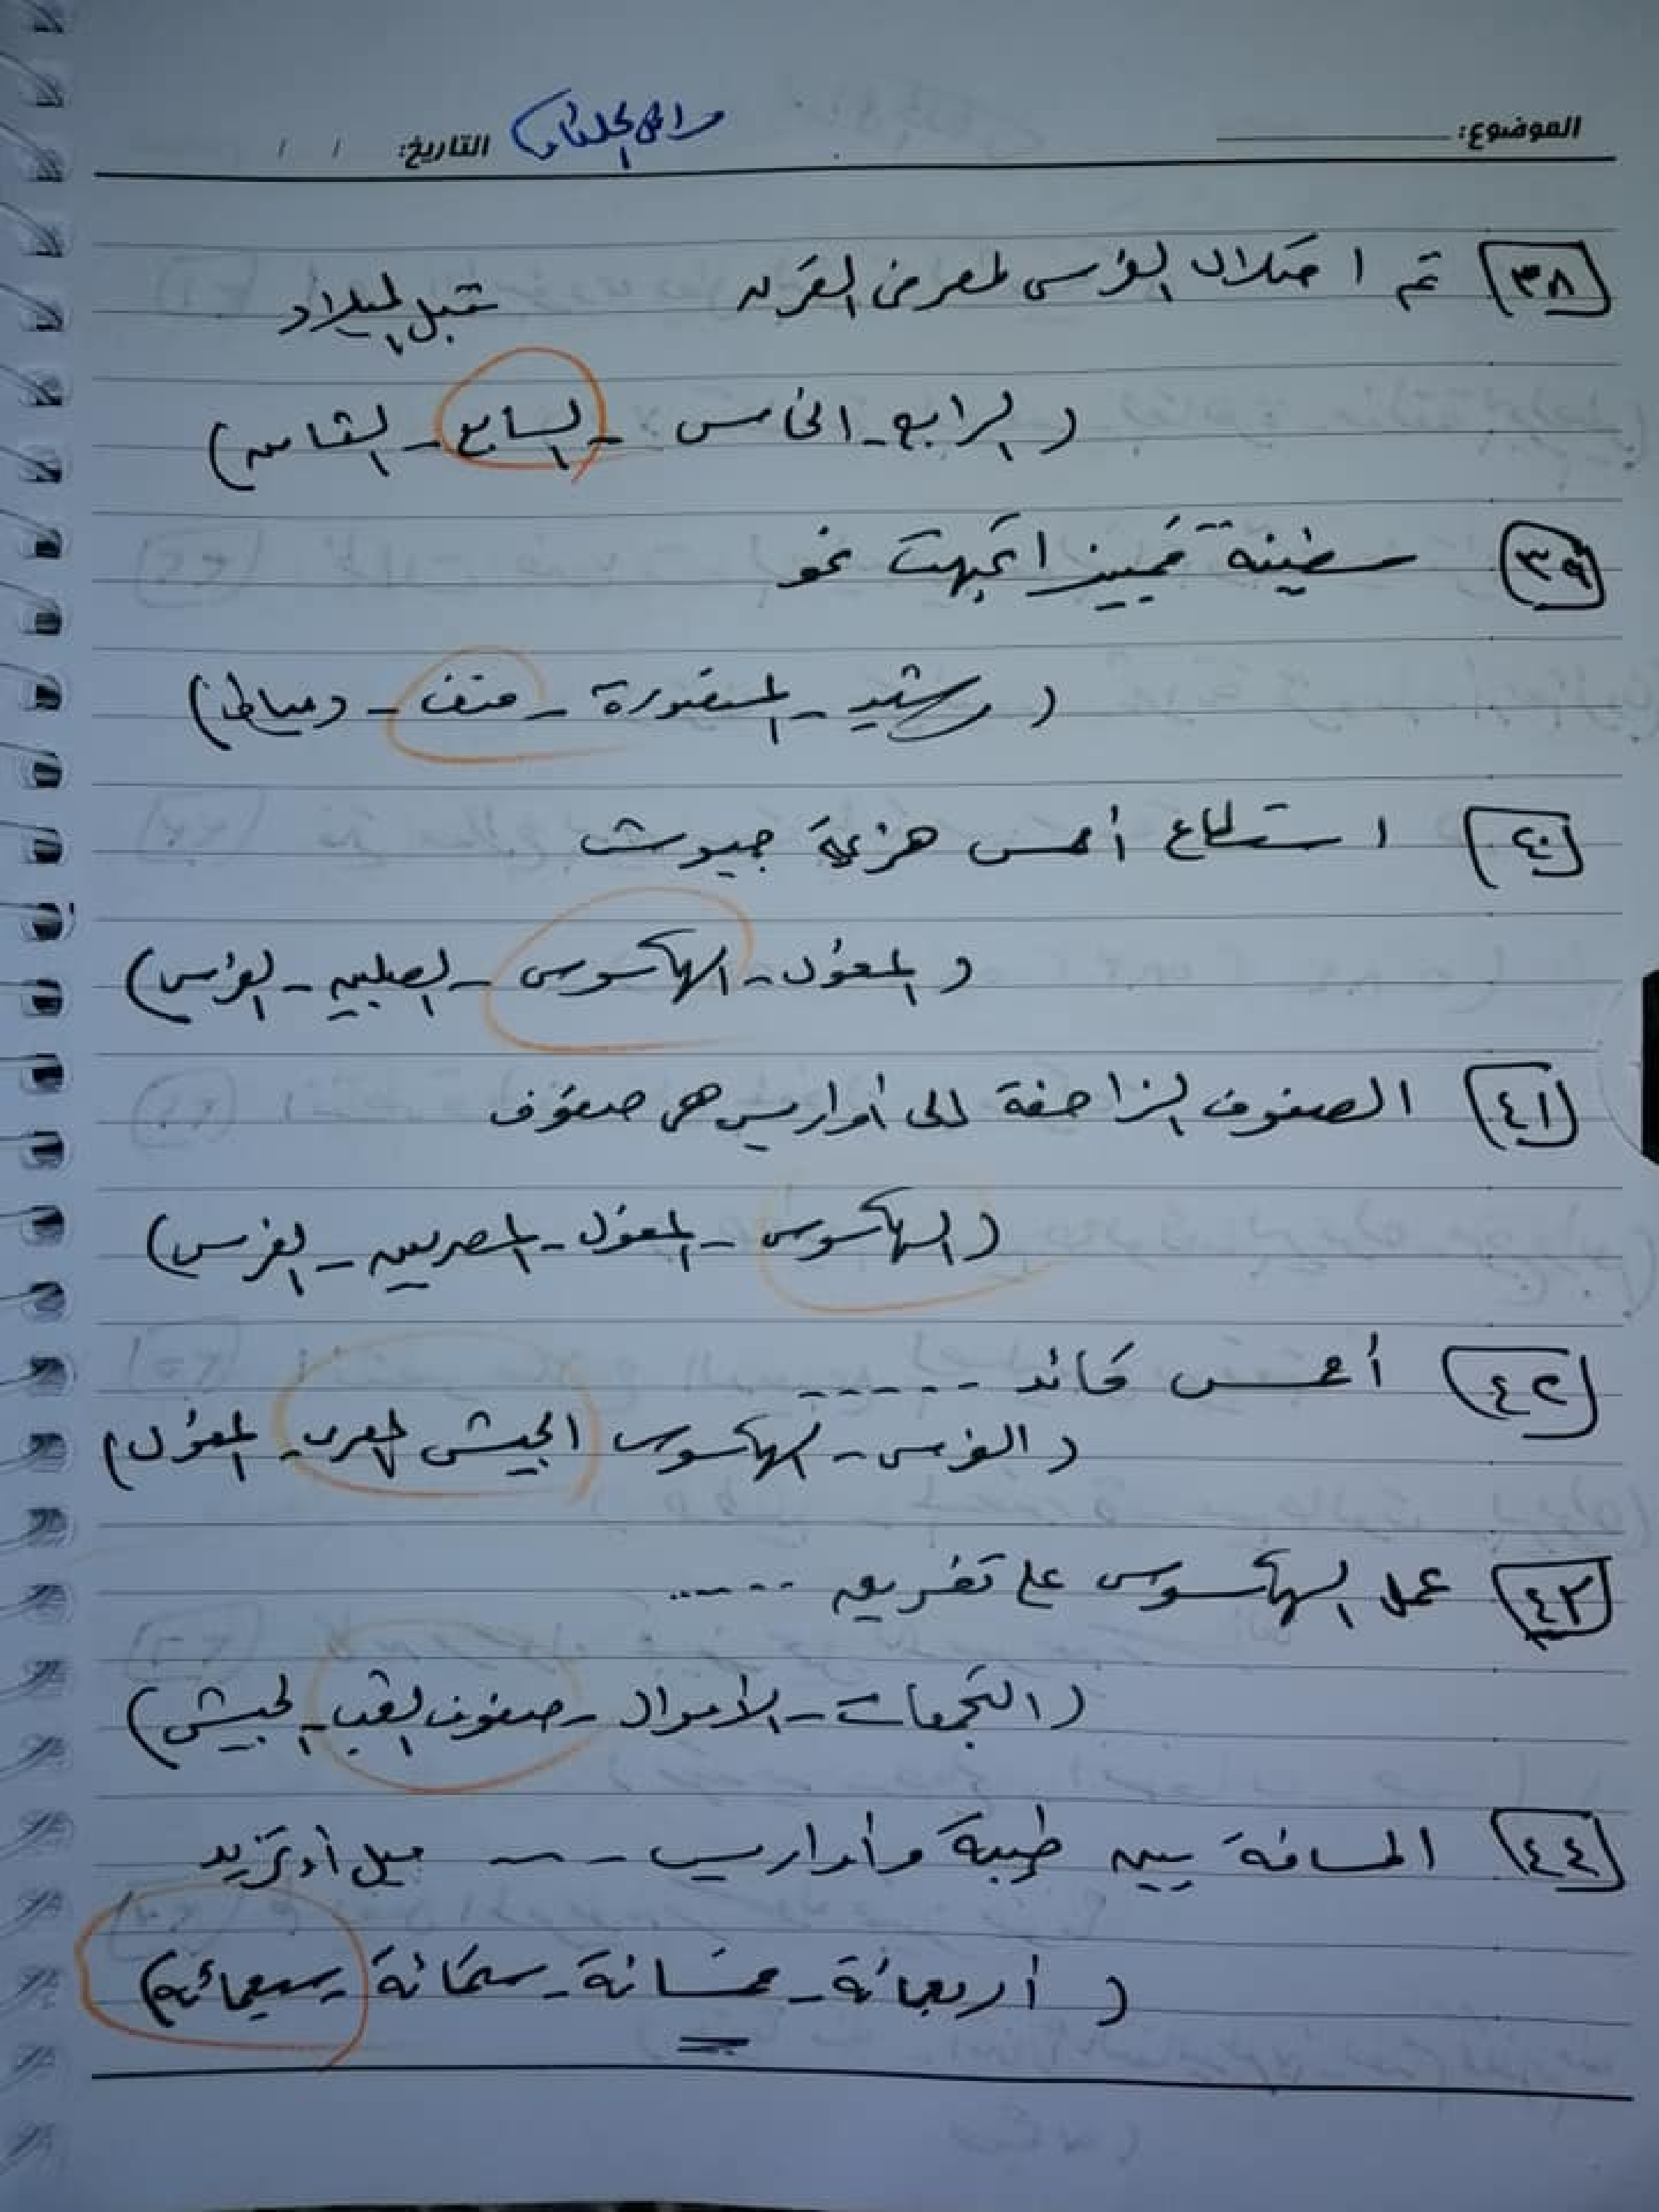 الموضوع:
التاريخ: / /
٣٨ تم احتلال الفرس لمصر فى القرن قبل الميلاد
( الرابع - الخامس - السابع - الثامن )
٣٩ سفينة قمبيز اتجهت نحو
( رشيد - المنصورة - منف - دمياط )
٤٠ استطاع أحمس هزيمة جيوش
( المغول - الهكسوس - الصليبين - الفرس )
٤١ الصفوف الزاحفة إلى أواريس هى صفوف
( الهكسوس - المغول - المصريين - الفرس )
٤٢ أحمس قائد ------
( الفرس - الهكسوس الجيش المصرى - المغول )
٤٣ عمل الهكسوس على تفريق -----
( التجمعات - الأموال - صفوف الشعب - الجيش )
٤٤ المسافة بين طيبة وأواريس --- ميل أو تزيد
( أربعمائة - خمسمائة - ستمائة - سبعمائة )